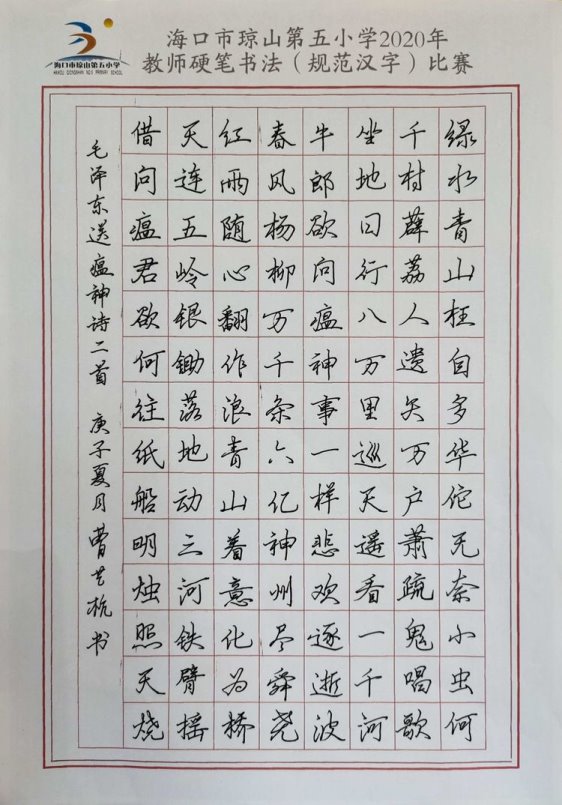 海口市琼山第五小学
HAIKOU QIONGSHAN NO.5 PRIMARY SCHOOL
海口市琼山第五小学2020年
教师硬笔书法（规范汉字）比赛
绿水青山枉自多华佗无奈小虫何
千村薜荔人遗矢万户萧疏鬼唱歌
坐地日行八万里巡天遥看一千河
牛郎欲问瘟神事一样悲欢逐逝波
春风杨柳万千条六亿神州尽舜尧
红雨随心翻作浪青山着意化为桥
天连五岭银锄落地动三河铁臂摇
借问瘟君欲何往纸船明烛照天烧
毛泽东送瘟神诗二首 庚子夏月曹艺杭书